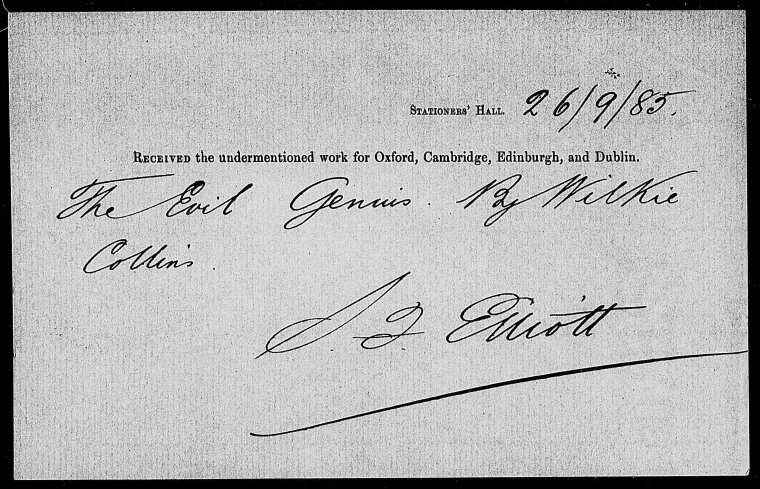 STATIONERS' HALL. 26/9/85.
RECEIVED the undermentioned work for Oxford, Cambridge, Edinburgh, and Dublin.
The Evil Genius. By Wilkie
Collins.
Elliott